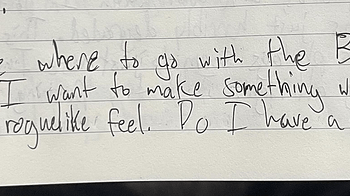 where to go with the B
I want to make something w
roguelike feel. Do I have a